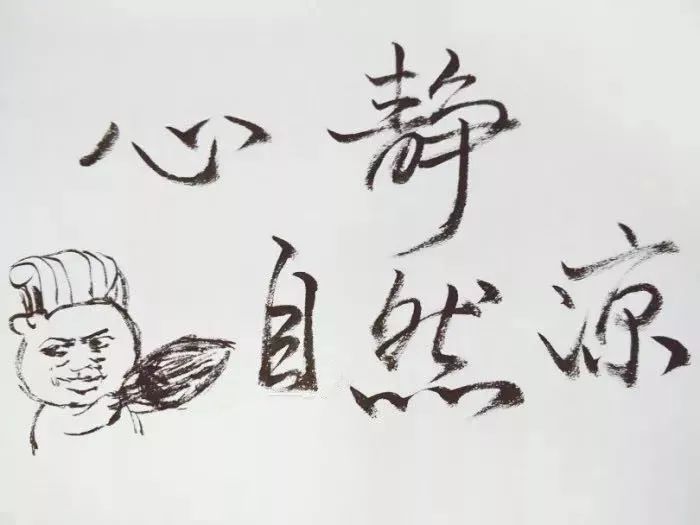 心静
自然凉